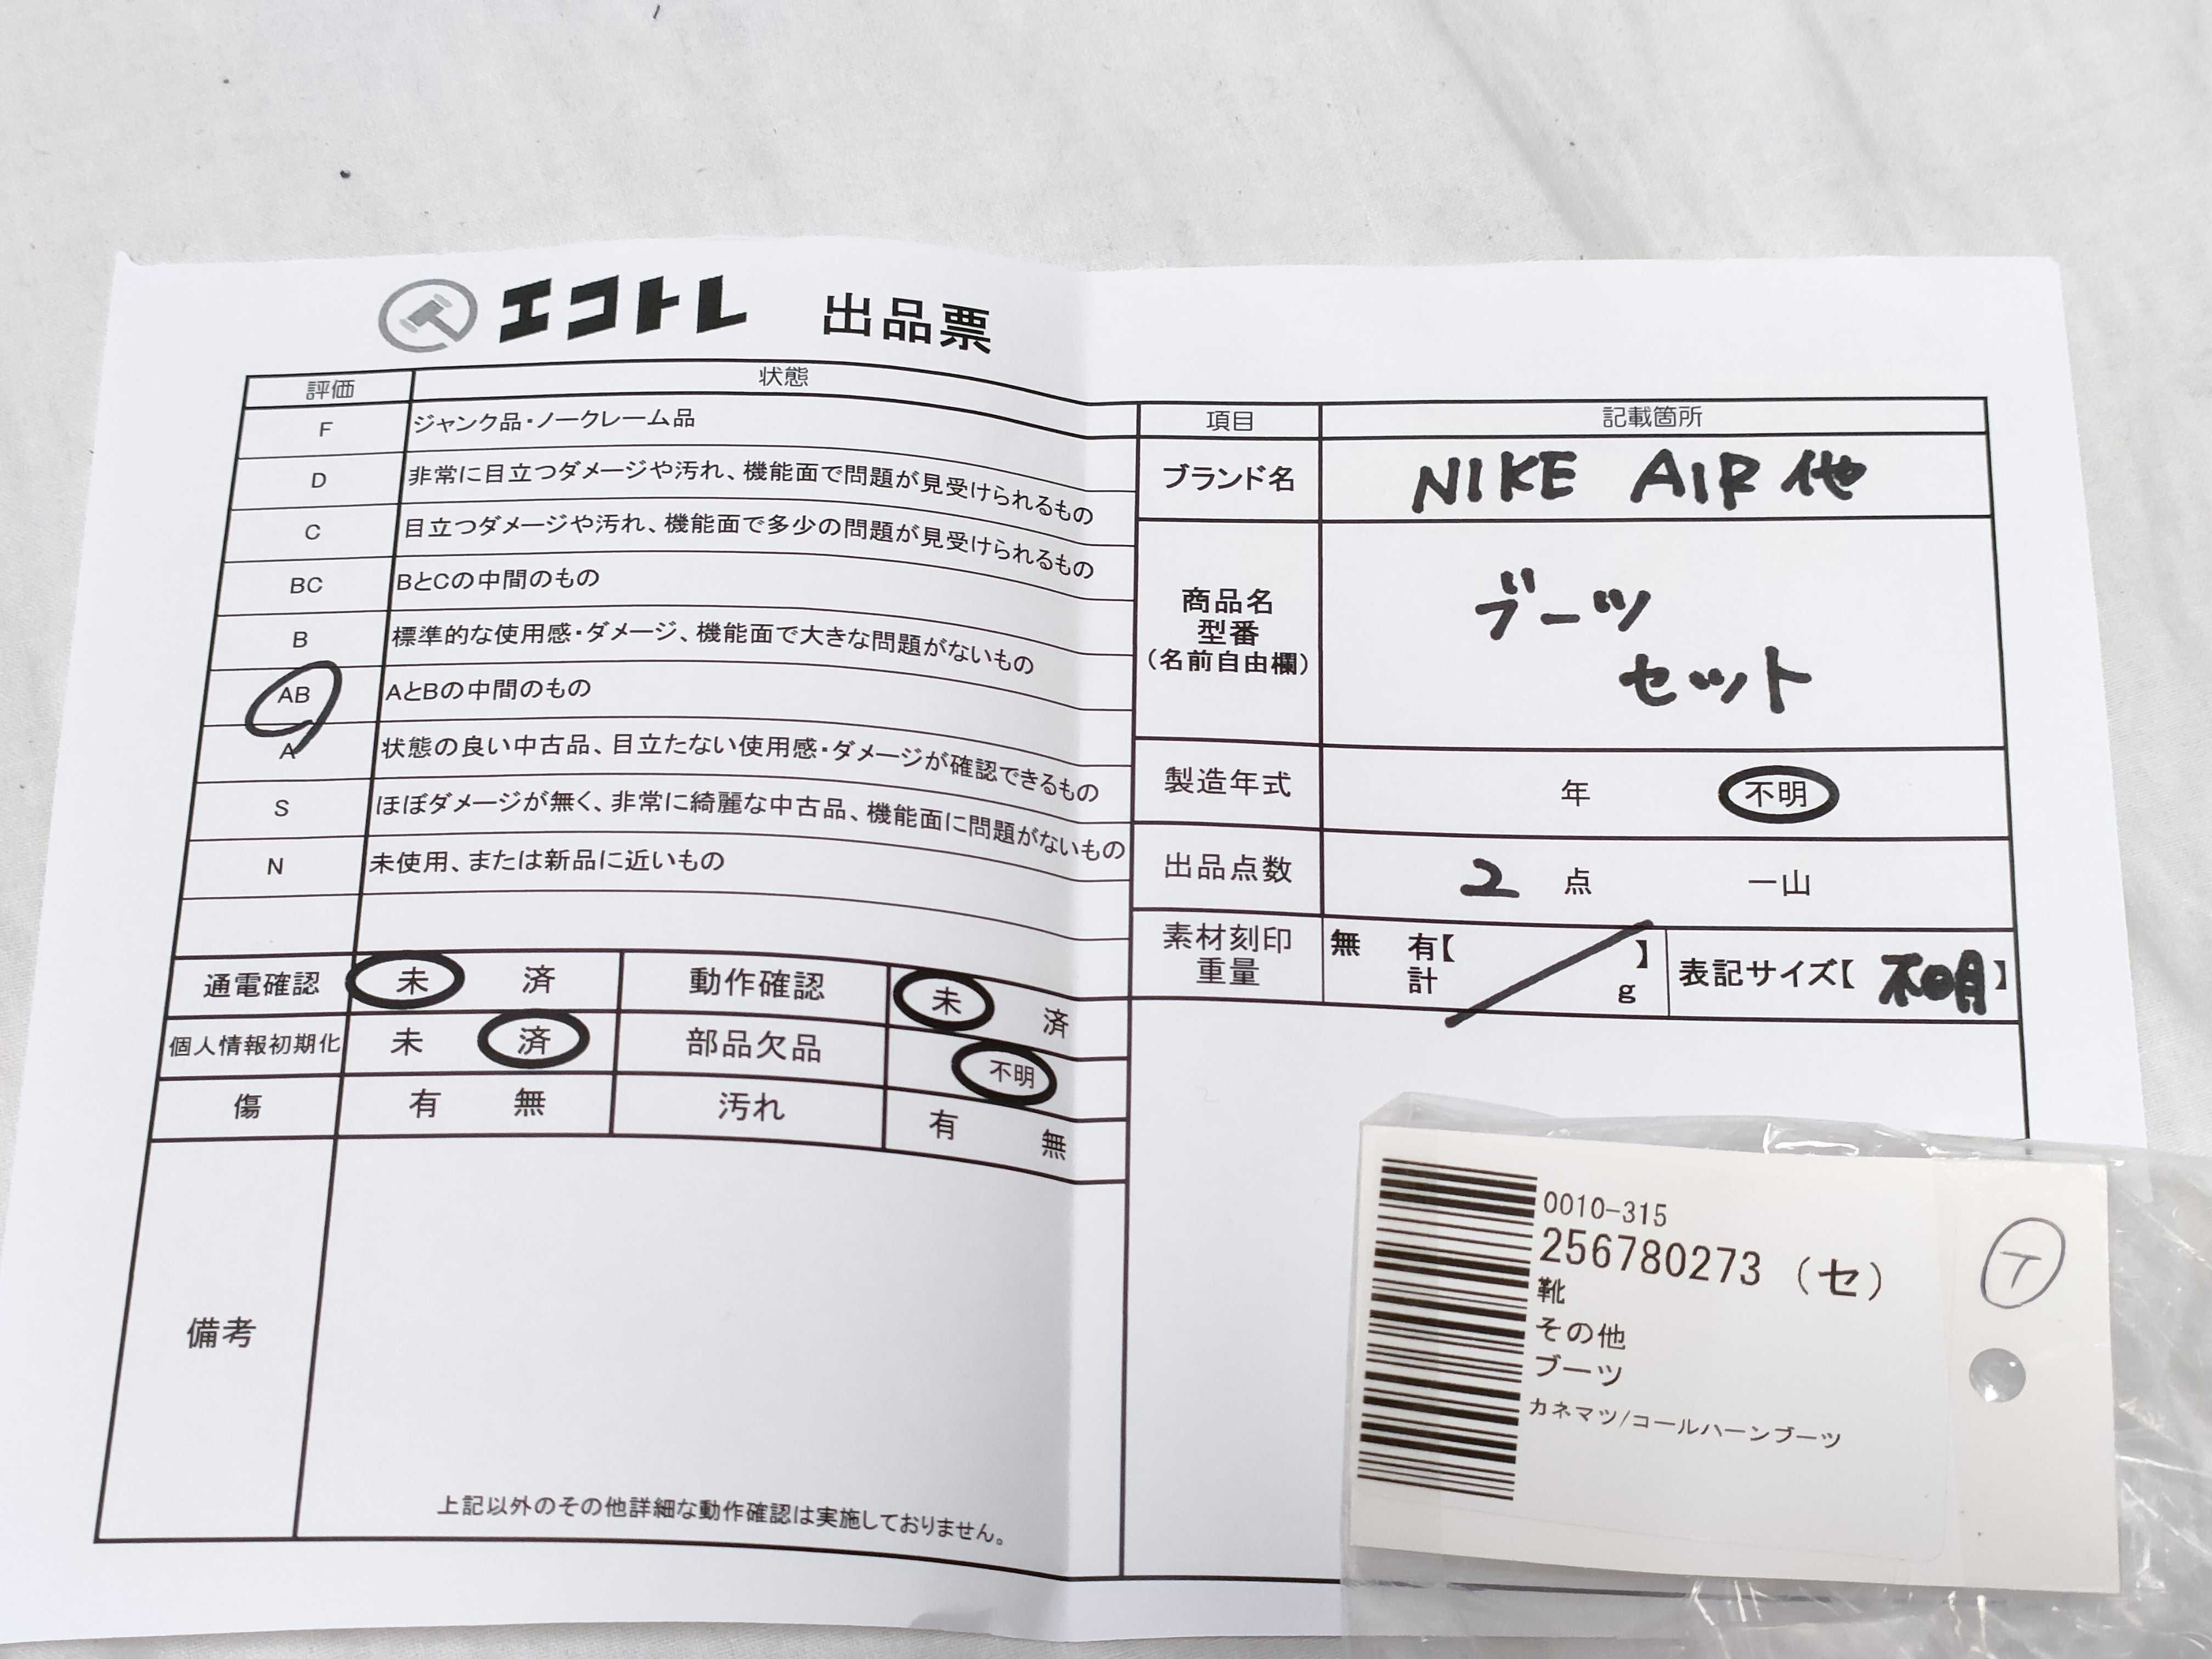 エコトレ 出品票
評価 状態
F ジャンク品・ノークレーム品
D 非常に目立つダメージや汚れ、機能面で問題が見受けられるもの
C 目立つダメージや汚れ、機能面で多少の問題が見受けられるもの
BC BとCの中間のもの
B 標準的な使用感・ダメージ、機能面で大きな問題がないもの
AB AとBの中間のもの
A 状態の良い中古品、目立たない使用感・ダメージが確認できるもの
S ほぼダメージが無く、非常に綺麗な中古品、機能面に問題がないもの
N 未使用、または新品に近いもの
通電確認 未 済 動作確認 未 済
個人情報初期化 未 済 部品欠品 不明
傷 有 無 汚れ 有 無
備考
上記以外のその他詳細な動作確認は実施しておりません。
項目 記載箇所
ブランド名 NIKE AIR 他
商品名
型番
(名前自由欄)
ブーツ
セット
製造年式 年 不明
出品点数 2 点 一山
素材刻印
重量
無 有【 】
計 g
表記サイズ【 不明 】
0010-315
256780273 (セ)
靴
その他
ブーツ
カネマツ/コールハーンブーツ